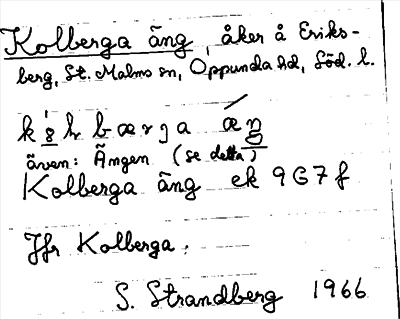 Kolberga äng, åker å Eriks-
berg, St. Malms sn, Oppunda hd, Söd. l.
även: Ängen (se detta)
Kolberga äng ek 967 f
Jfr Kolberga.
S. Strandberg 1966